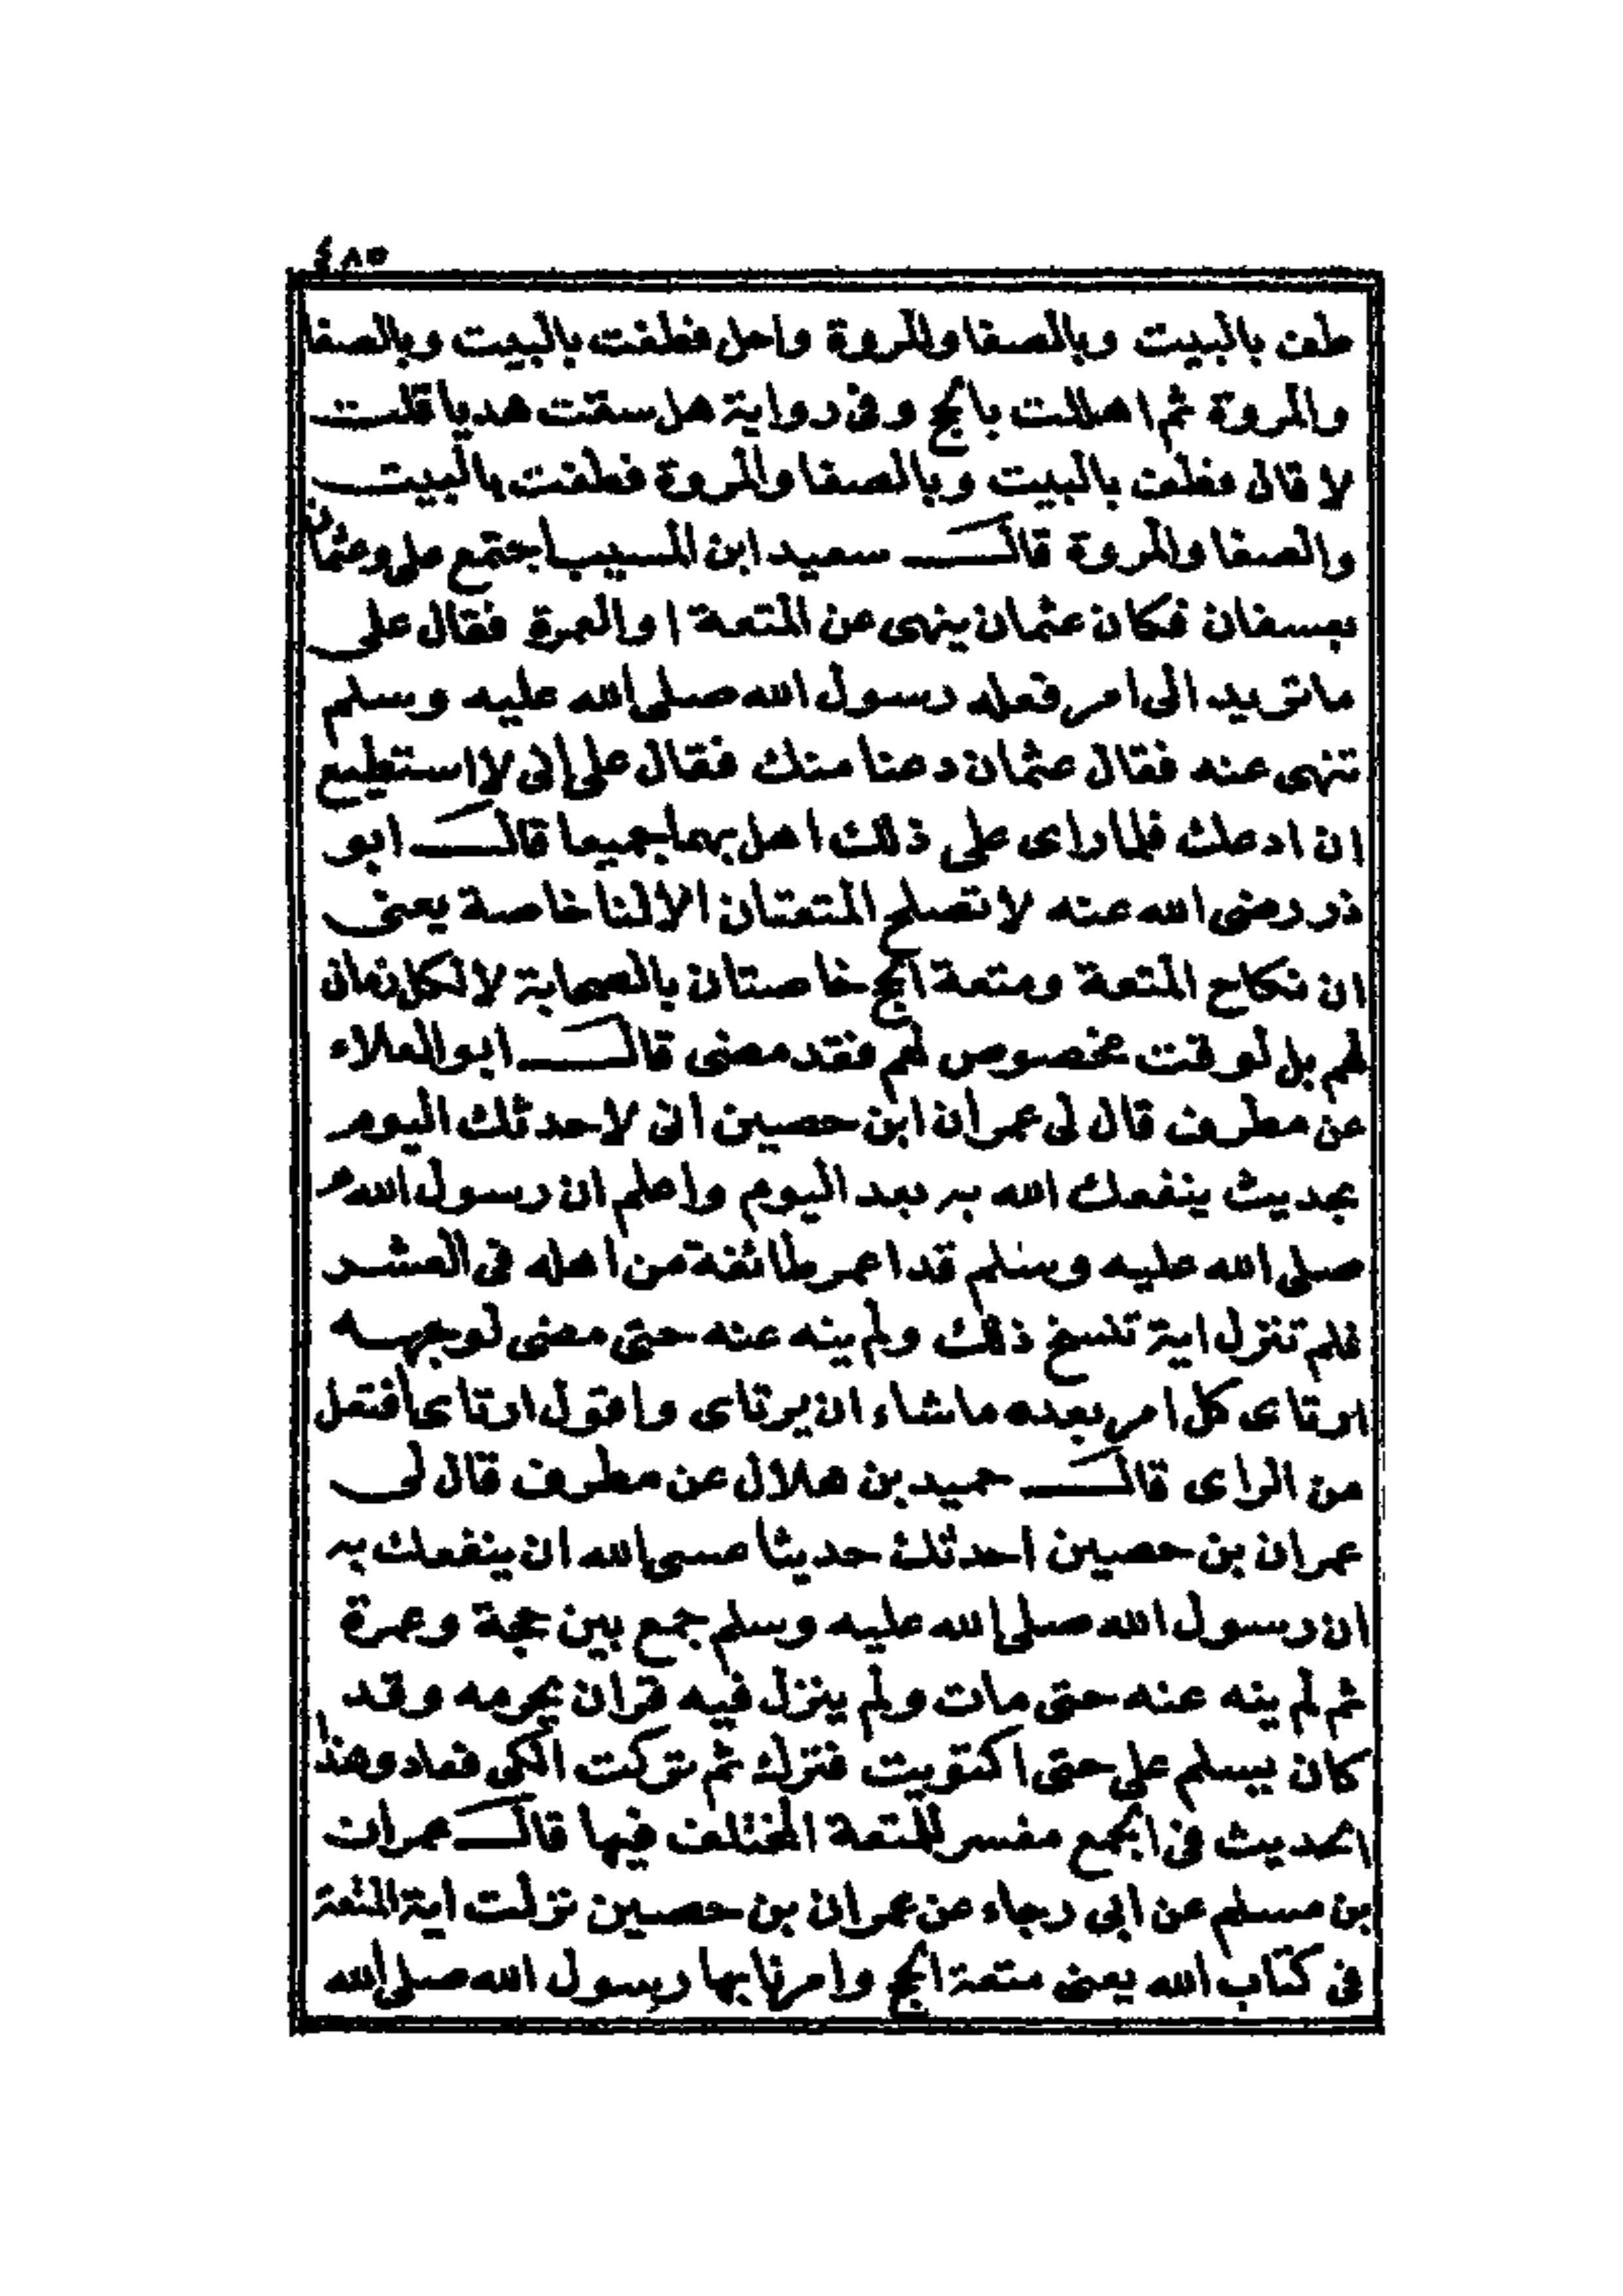 ٤٨٥
طف بالبيت وبالصفا والمروة واحل فطفت بالبيت وبالصفا
والمروة ثم اهللت بالحج وفى رواية هل سقت هديا قلت
لا قال فطف بالبيت وبالصفا والمروة فطفت بالبيت
والصفا والمروة قال سعيد ابن المسيب اجتمع على وعثمان
بعسفان فكان عثمان ينهى عن المتعة او العمرة فقال على
ما تريد الى امر فعله رسول الله صلى الله عليه وسلم
تنهى عنه فقال عثمان دعنا منك فقال على انى لا استطيع
ان ادعك فلما راى على ذلك اهل بهما جميعا قال ابو
ذر رضى الله عنه لا تصلح المتعتان الا لنا خاصة يعنى
ان نكاح المتعة ومتعة الحج خاصتان بالصحابة لا لكل زمان
لهم بل لوقت مخصوص لهم فقد مضى قال ابو العلاء
عن مطرف قال لى عمران ابن حصين انى لاحدثك اليوم
بحديث ينفعك الله به بعد اليوم واعلم ان رسول الله
صلى الله عليه وسلم قد اعمر طائفة من اهله فى العشر
فلم تنزل اية تنسخ ذلك ولم ينه عنه حتى مضى لوجهه
ارتاى كل امر بعده ما شاء ان يرتاى واقول ارتاى افتعل
من الراى قال حميد بن هلال عن مطرف قال لى
عمران بن حصين احدثك حديثا عسى الله ان ينفعك به
ان رسول الله صلى الله عليه وسلم جمع بين حجة وعمرة
ثم لم ينه عنه حتى مات ولم ينزل فيه قران يحرمه وقد
كان يسلم على حتى اكتويت فترك ثم تركت الكى فعاد وهذا
الحديث فى الجمع مفسر للمتعة المختلف فيها قال عمران
بن مسلم عن ابى رجاء عن عمران بن حصين نزلت اية المتعة
فى كتاب الله يعنى متعة الحج وامرنا بها رسول الله صلى الله